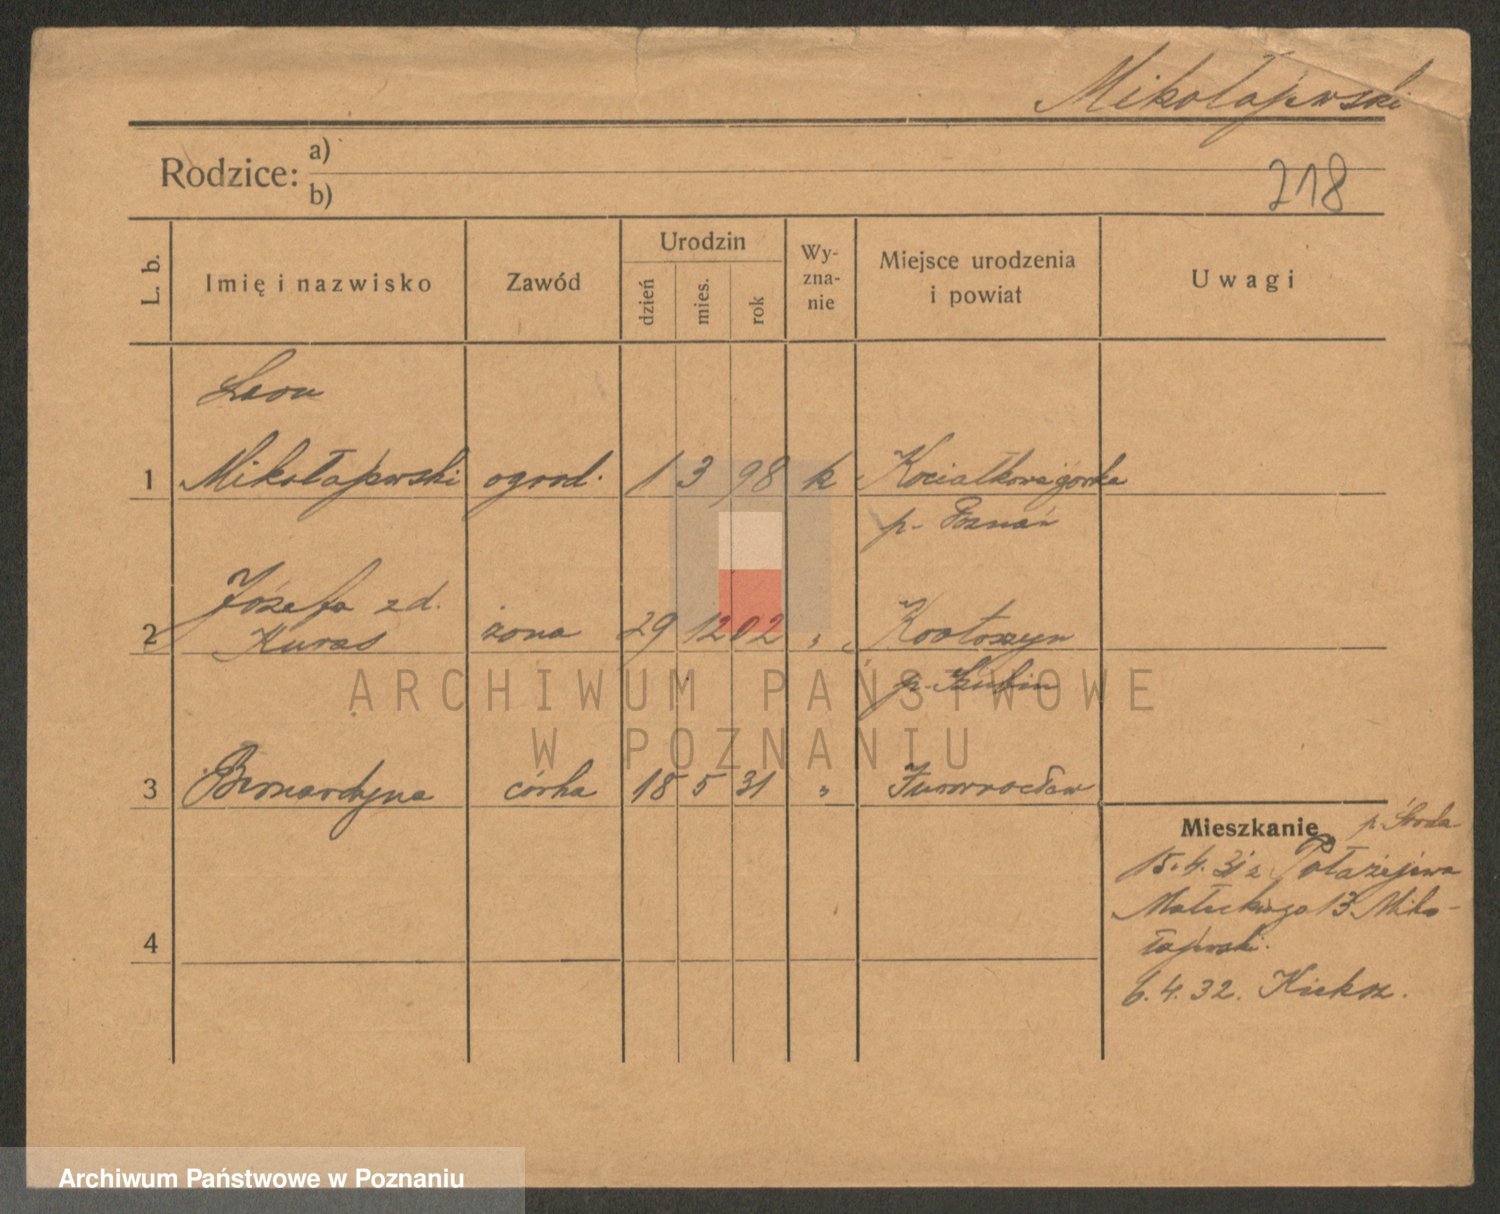 Mikołajewski
Rodzice: a)
b)
218
L. b.
Imię i nazwisko
Zawód
Urodzin
dzień
mies.
rok
Wy-
zna-
nie
Miejsce urodzenia
i powiat
Uwagi
Leon
1 Mikołajewski ogrod. 1 3 98 k Kociałkowagórka
p. Poznań
Józefa zd.
2 Kuras żona 29 12 02 " Krotoszyn
p. Szubin
3 Bernardyna córka 18 5 31 " Inowrocław
Mieszkanie p. Środa
15.4.31 z Połażejewa
Małeckiego 13 Miko-
łajewski.
4
6.4.32. Kiekrz.
ARCHIWUM PAŃSTWOWE
W POZNANIU
Archiwum Państwowe w Poznaniu